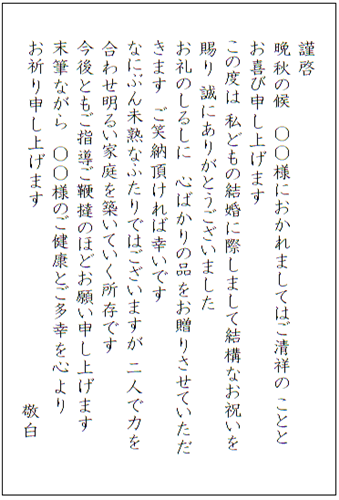 謹啓
晩秋の候　〇〇様におかれましてはご清祥の ことと
お喜び申し上げます
この度は 私どもの結婚に際しまして結構なお祝いを
賜り 誠にありがとうございました
お礼のしるしに　心ばかりの品をお贈りさせていただ
きます　ご笑納頂ければ幸いです
なにぶん未熟なふたりではございますが 二人で力を
合わせ明るい家庭を築いていく所存です
今後ともご指導ご鞭撻のほどお願い申し上げます
末筆ながら　〇〇様のご健康とご多幸を心より
お祈り申し上げます
敬白